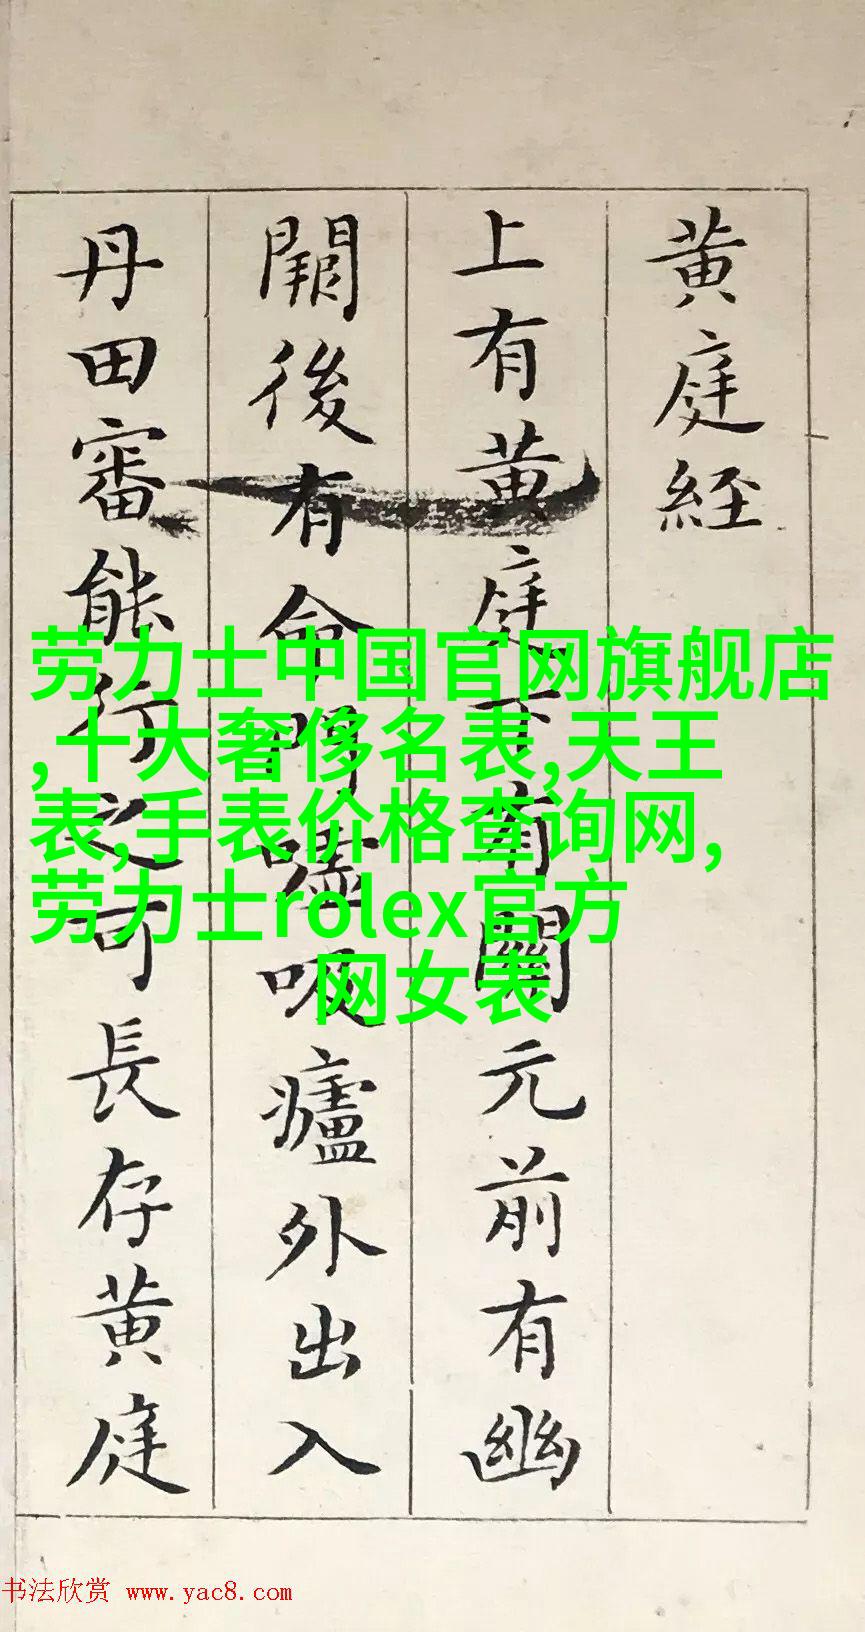 黄庭経
上有黄庭下有關元前有幽
闕後有命門嘘吸廬外出入
丹田審能行之可長存黄庭
劳力士中国官网旗舰店
,十大奢侈名表,天王
表,手表价格查询网,
劳力士rolex官方
网女表
书法欣赏 www.yac8.com